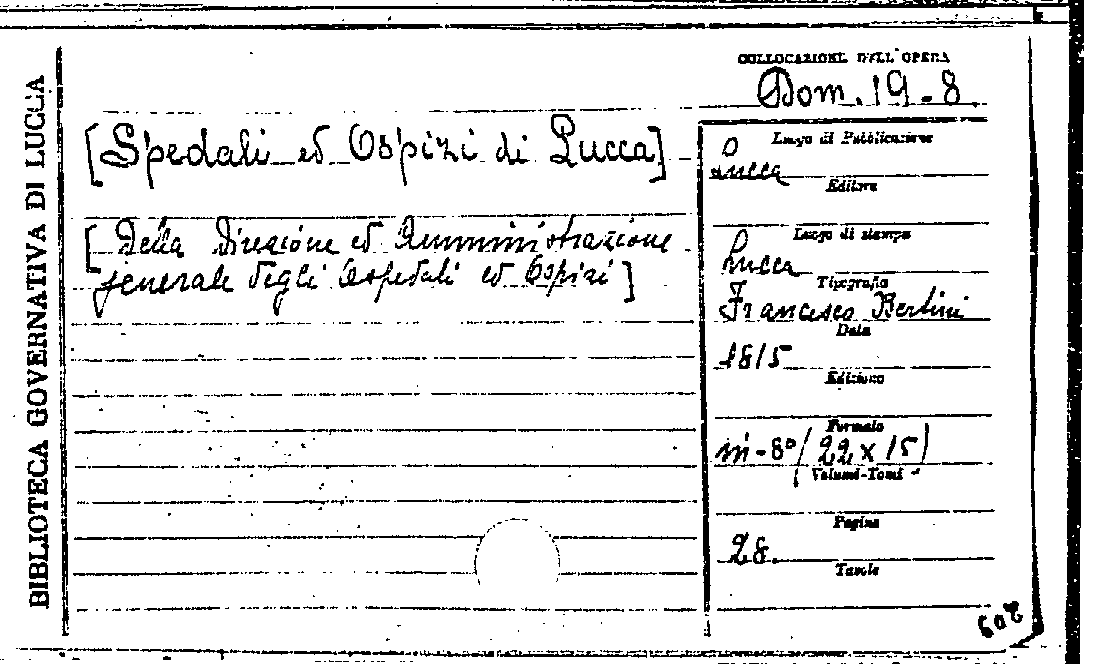 BIBLIOTECA GOVERNATIVA DI LUCCA
COLLOCAZIONE DELL'OPERA
Dom. 19-8.
[Spedali ed Ospizi di Lucca]
[Della Direzione ed Amministrazione
generale degli Ospedali ed Ospizi]
Luogo di Pubblicazione
Lucca
Editore
Luogo di stampa
Lucca
Tipografia
Francesco Bertini
Data
1815
Edizione
Formato
in-8° (22 x 15)
Volumi-Tomi
Pagine
28.
Tavole